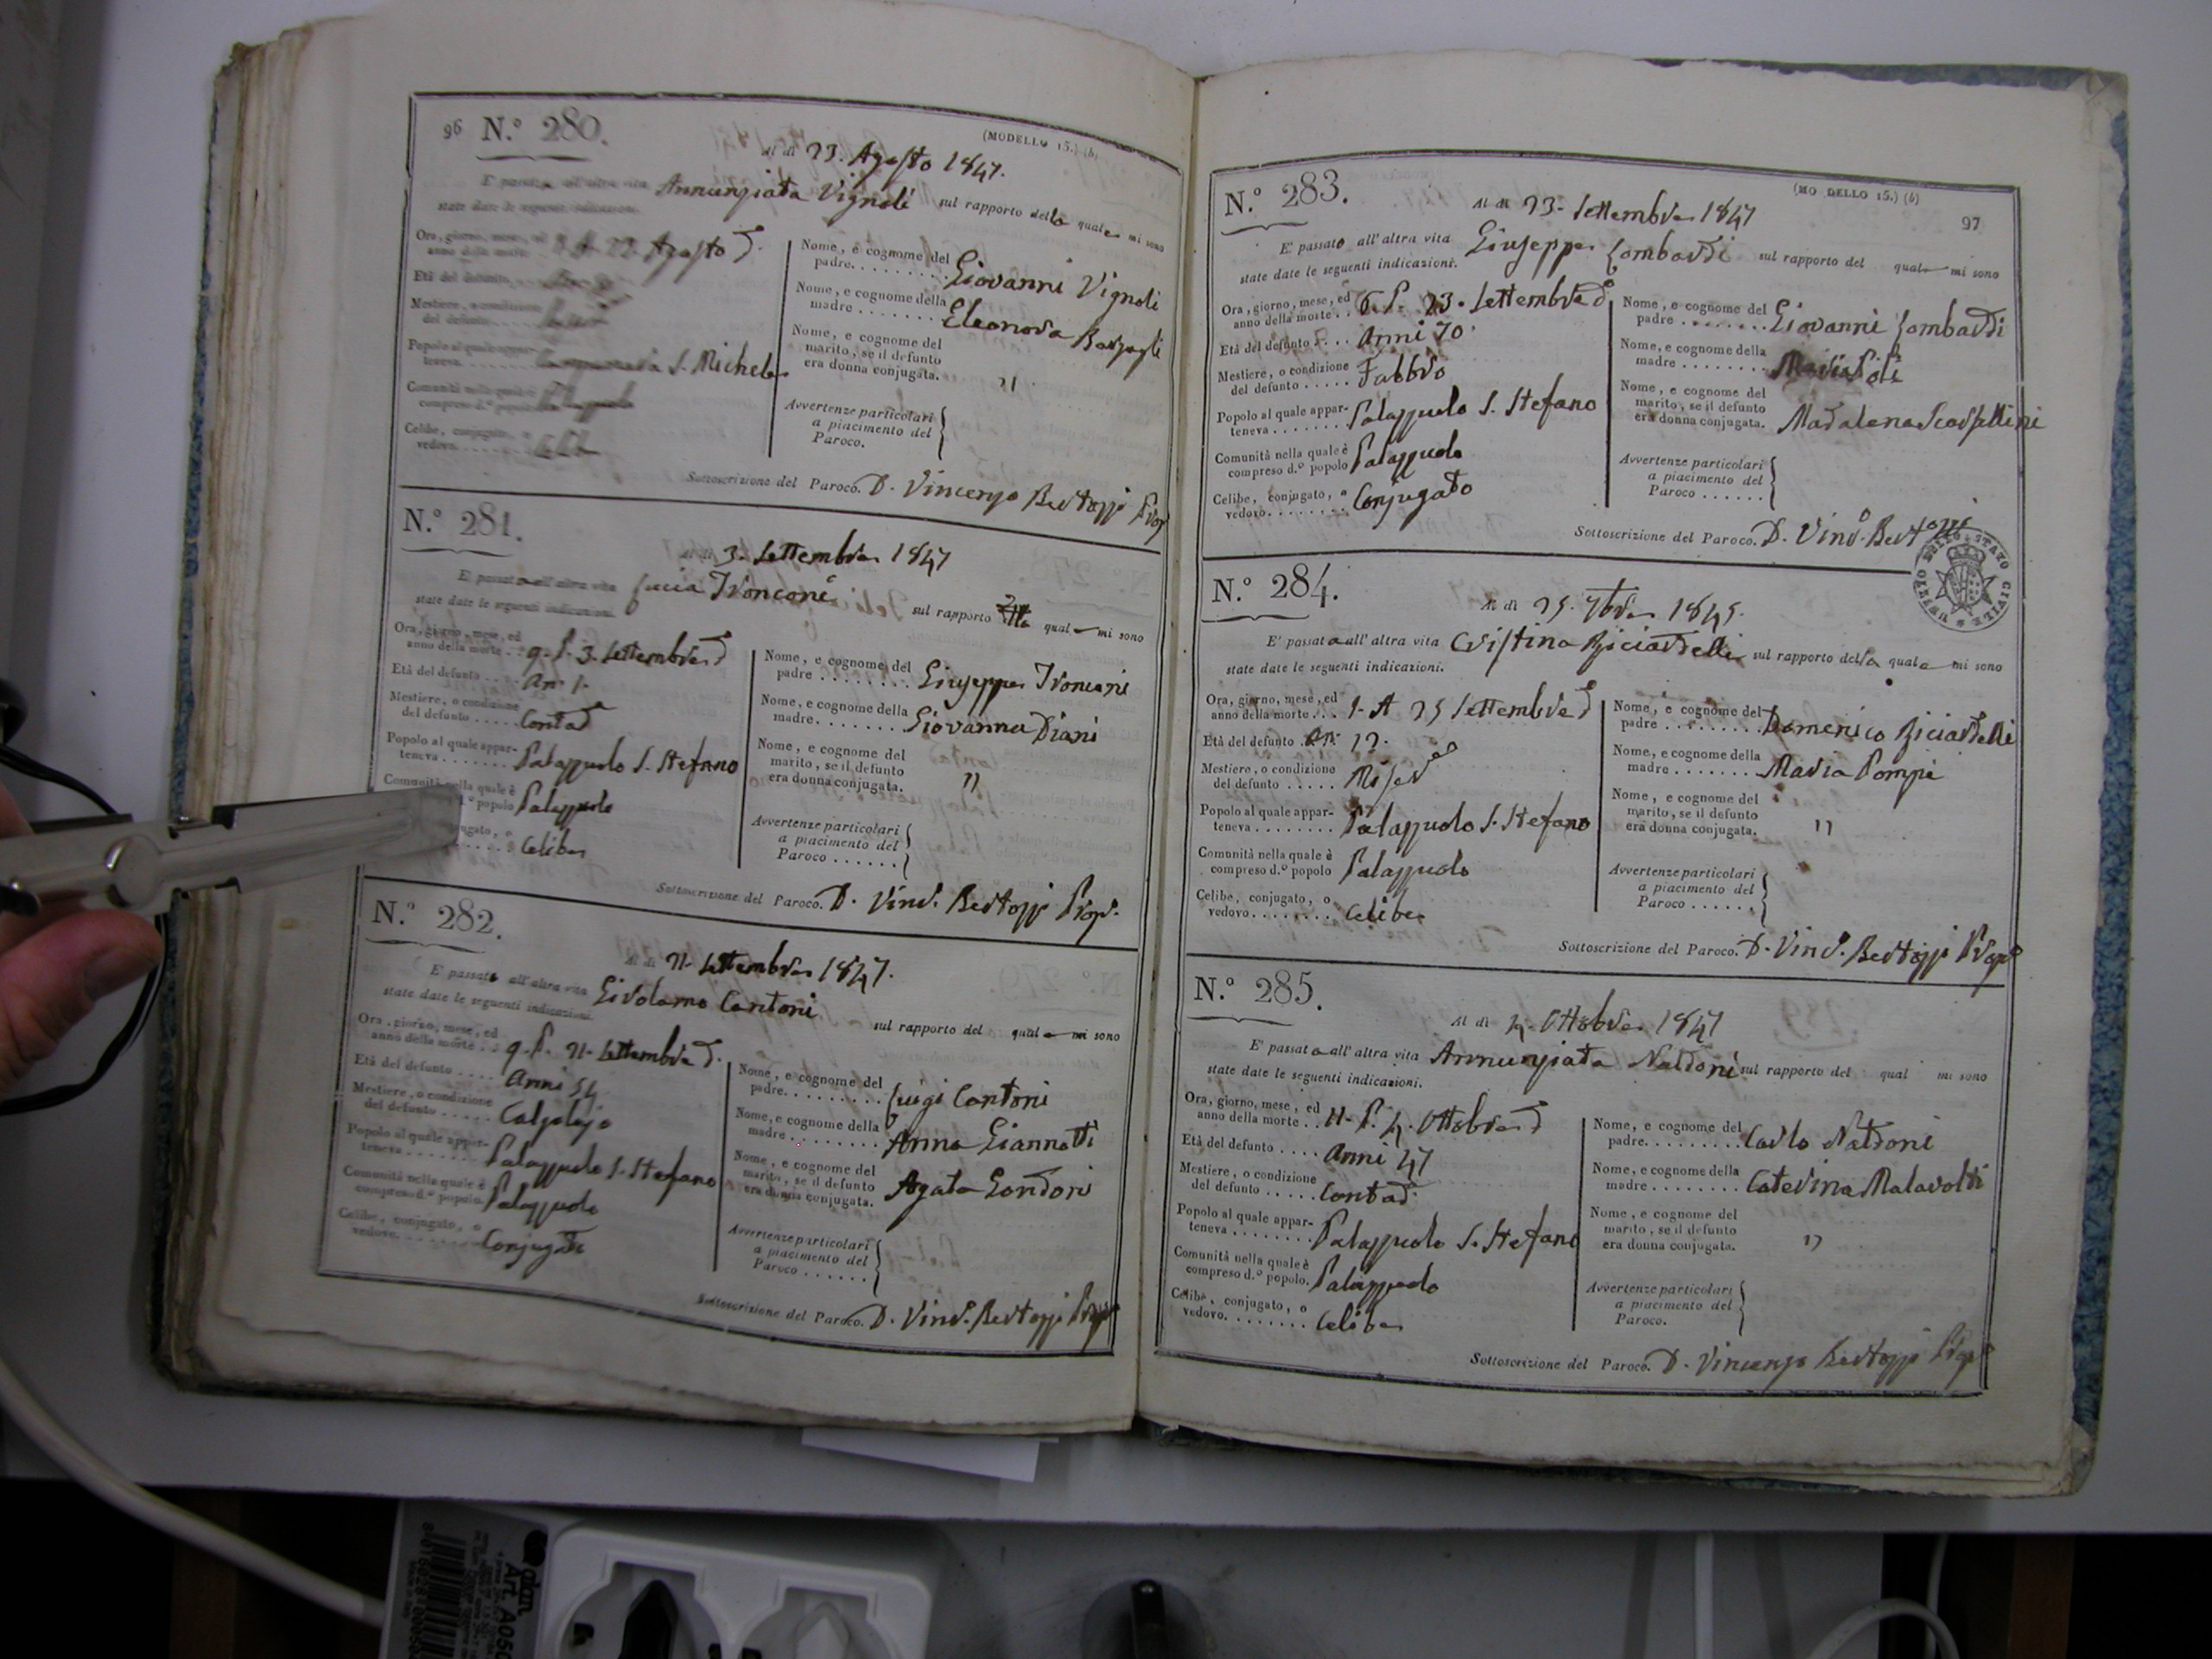 96 N.º 280. (MODELLO 15.) (b)
Al di 23. Agosto 1847.
E' passata all'altra vita Annunziata Vignoli sul rapporto della quale mi sono
state date le seguenti indicazioni.
Ora, giorno, mese, ed
anno della morte 22 Agosto d.º
Età del defunto
Mestiere, o condizione
del defunto
Popolo al quale appar-
teneva S. Michele
Comunità nella quale è
compreso d.º popolo Palazzuolo
Celibe, conjugato, o
vedovo Celibe
Nome, e cognome del
padre Giovanni Vignoli
Nome, e cognome della
madre Eleonora Barzagli
Nome, e cognome del
marito, se il defunto
era donna conjugata. "
Avvertenze particolari
a piacimento del
Paroco.
Sottoscrizione del Paroco. D. Vincenzo Bertozzi
N.º 281.
Al di 3. Settembre 1847
E' passata all'altra vita Lucia Tronconi sul rapporto quale mi sono
state date le seguenti indicazioni.
Ora, giorno, mese, ed
anno della morte 9. P. 3. Settembre d.º
Età del defunto An. 1.
Mestiere, o condizione
del defunto Contad.
Popolo al quale appar-
teneva Palazzuolo S. Stefano
Comunità nella quale è
d.º popolo Palazzuolo
ugato, o
Celibe
Nome, e cognome del
padre Giuseppe Tronconi
Nome, e cognome della
madre Giovanna Diani
Nome, e cognome del
marito, se il defunto
era donna conjugata. "
Avvertenze particolari
a piacimento del
Paroco
Sottoscrizione del Paroco. D. Vinc. Bertozzi Prop.
N.º 282.
Al di 21. Settembre 1847.
E' passato all'altra vita Girolamo Cantoni sul rapporto del quale mi sono
state date le seguenti indicazioni.
Ora, giorno, mese, ed
anno della morte 9. P. 21. Settembre d.
Età del defunto Anni 54
Mestiere, o condizione
del defunto Calzolajo
Popolo al quale appar-
teneva Palazzuolo S. Stefano
Comunità nella quale è
compreso d.º popolo. Palazzuolo
Celibe, conjugato, o
vedovo Conjugato
Nome, e cognome del
padre Luigi Cantoni
Nome, e cognome della
madre Anna Giannotti
Nome, e cognome del
marito, se il defunto
era donna conjugata. Agata Gondoni
Avvertenze particolari
a piacimento del
Paroco
Sottoscrizione del Paroco. D. Vinc. Bertozzi Prop.
N.º 283. (MODELLO 15.) (b)
97
Al di 23. Settembre 1847
E' passato all'altra vita Giuseppe Lombardi sul rapporto del quale mi sono
state date le seguenti indicazioni.
Ora, giorno, mese, ed
anno della morte 6. P. 23. Settembre d.
Età del defunto Anni 70
Mestiere, o condizione
del defunto Fabbro
Popolo al quale appar-
teneva Palazzuolo S. Stefano
Comunità nella quale è
compreso d.º popolo Palazzuolo
Celibe, conjugato, o
vedovo Conjugato
Nome, e cognome del
padre Giovanni Lombardi
Nome, e cognome della
madre Maria Poli
Nome, e cognome del
marito, se il defunto
era donna conjugata. Madalena Scarsellini
Avvertenze particolari
a piacimento del
Paroco
Sottoscrizione del Paroco. D. Vinc. Bertozzi
N.º 284.
Al di 25. 7bre 1845.
E' passata all'altra vita Cristina Riciardelli sul rapporto della quale mi sono
state date le seguenti indicazioni.
Ora, giorno, mese, ed
anno della morte 1. A 25 Settembre d.
Età del defunto An. 12.
Mestiere, o condizione
del defunto
Popolo al quale appar-
teneva Palazzuolo S. Stefano
Comunità nella quale è
compreso d.º popolo Palazzuolo
Celibe, conjugato, o
vedovo Celibe
Nome, e cognome del
padre Domenico Riciardelli
Nome, e cognome della
madre Maria Pompi
Nome, e cognome del
marito, se il defunto
era donna conjugata. "
Avvertenze particolari
a piacimento del
Paroco
Sottoscrizione del Paroco. D. Vinc. Bertozzi Prop.
N.º 285.
Al di 4. Ottobre 1847
E' passata all'altra vita Annunziata Naldoni sul rapporto del qual mi sono
state date le seguenti indicazioni.
Ora, giorno, mese, ed
anno della morte 11. P. 4. Ottobre d.
Età del defunto Anni 47
Mestiere, o condizione
del defunto Contad.
Popolo al quale appar-
teneva Palazzuolo S. Stefano
Comunità nella quale è
compreso d.º popolo. Palazzuolo
Celibe, conjugato, o
vedovo Celibe
Nome, e cognome del
padre Carlo Naldoni
Nome, e cognome della
madre Caterina Malavolti
Nome, e cognome del
marito, se il defunto
era donna conjugata. "
Avvertenze particolari
a piacimento del
Paroco.
Sottoscrizione del Paroco. D. Vincenzo Bertozzi Prop.